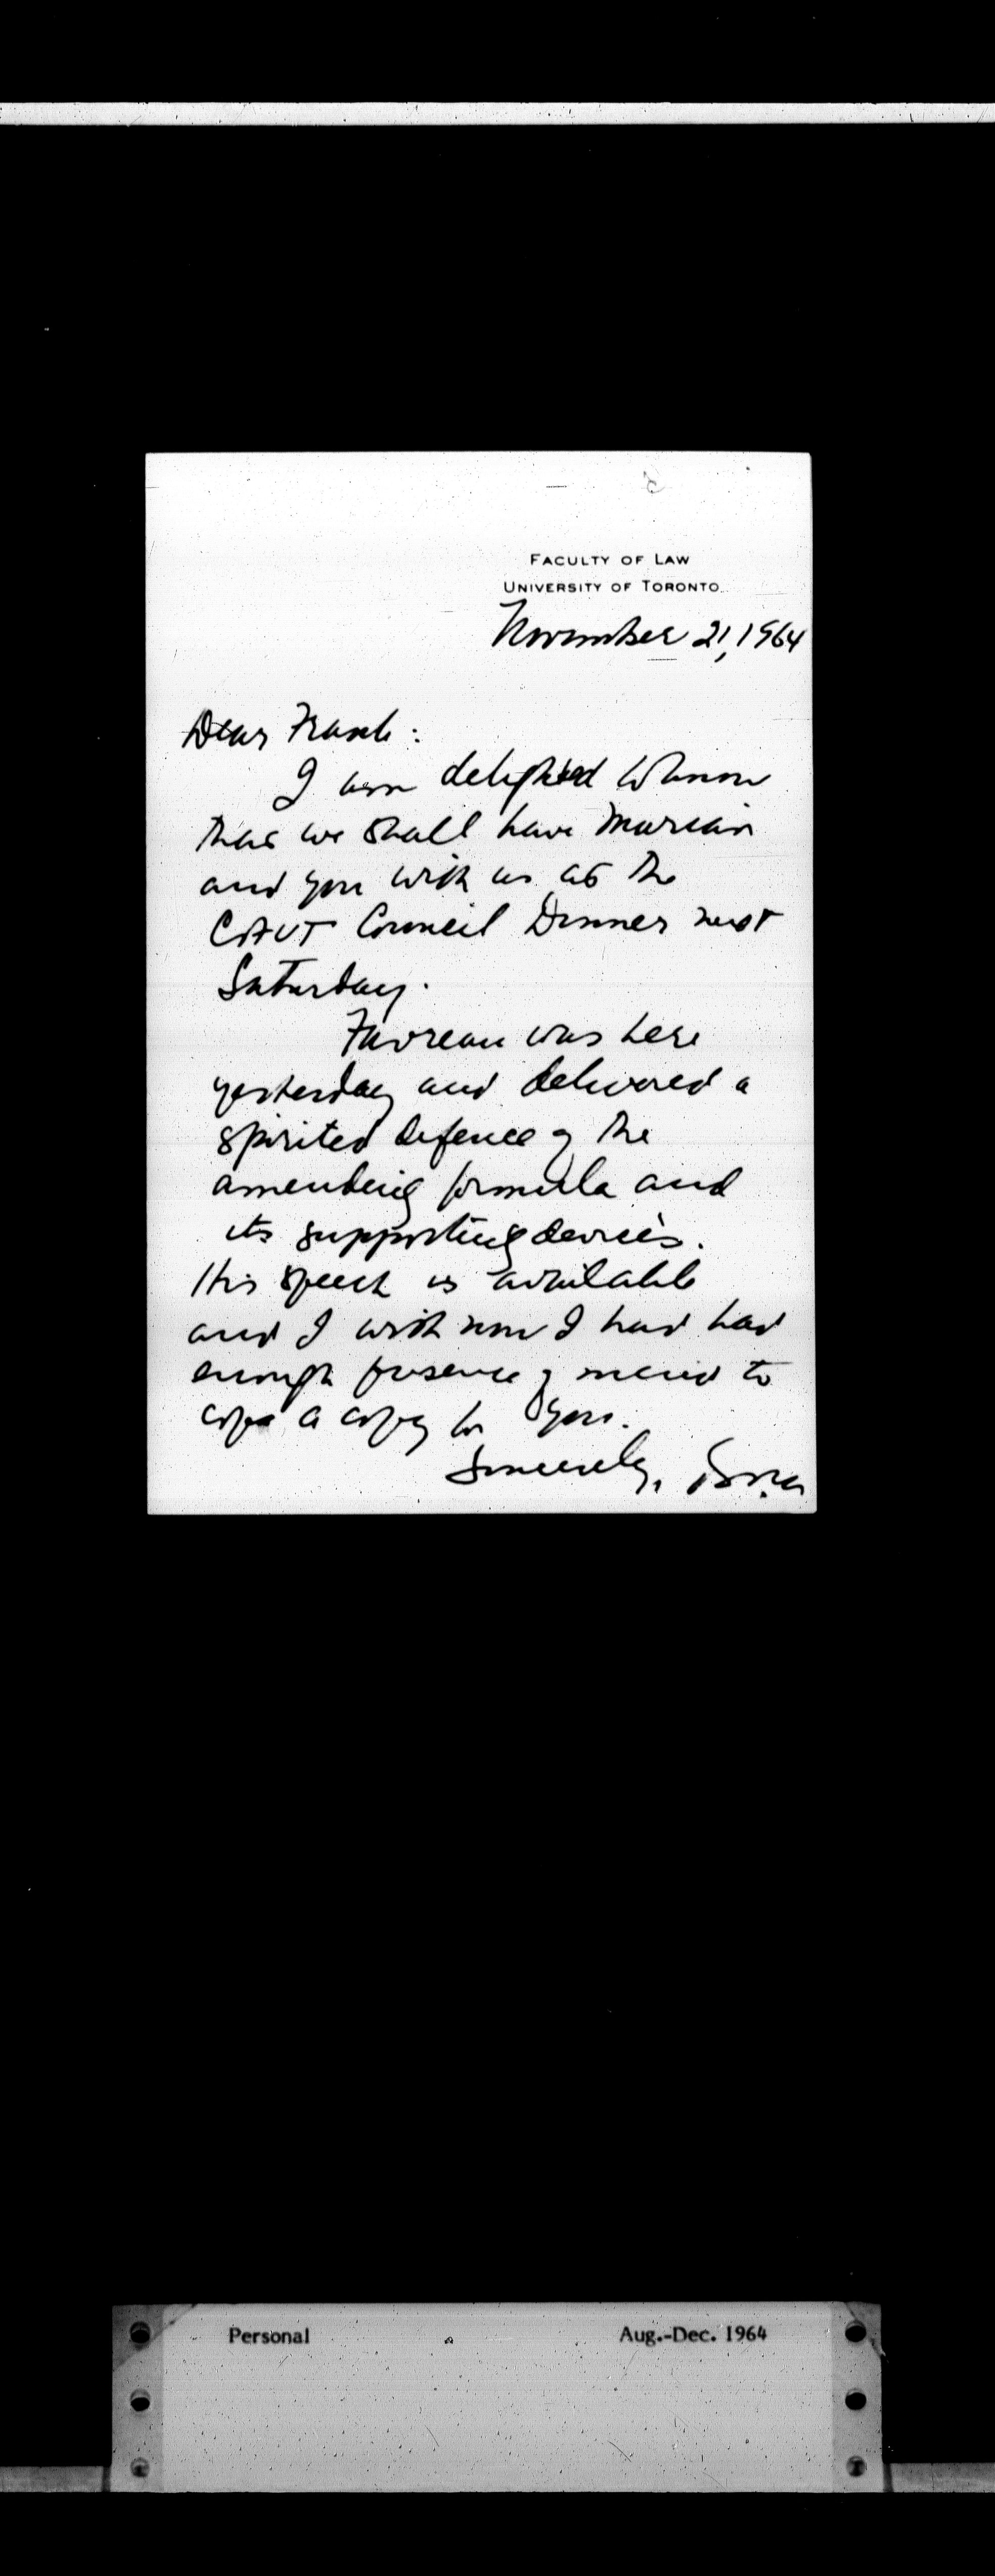 FACULTY OF LAW
UNIVERSITY OF TORONTO
November 21, 1964
Dear Frank:
I am delighted to know
that we shall have Marian
and you with us at the
CAUT Council Dinner next
Saturday.
Favreau was here
yesterday and delivered a
spirited defence of the
amending formula and
its supporting devices.
His speech is available
and I wish now I had had
enough presence of mind to
a copy for you.
Sincerely, Bora
Personal Aug.-Dec. 1964